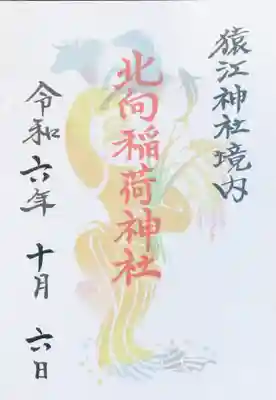 猿江神社境内
北向稲荷神社
令和六年十月六日